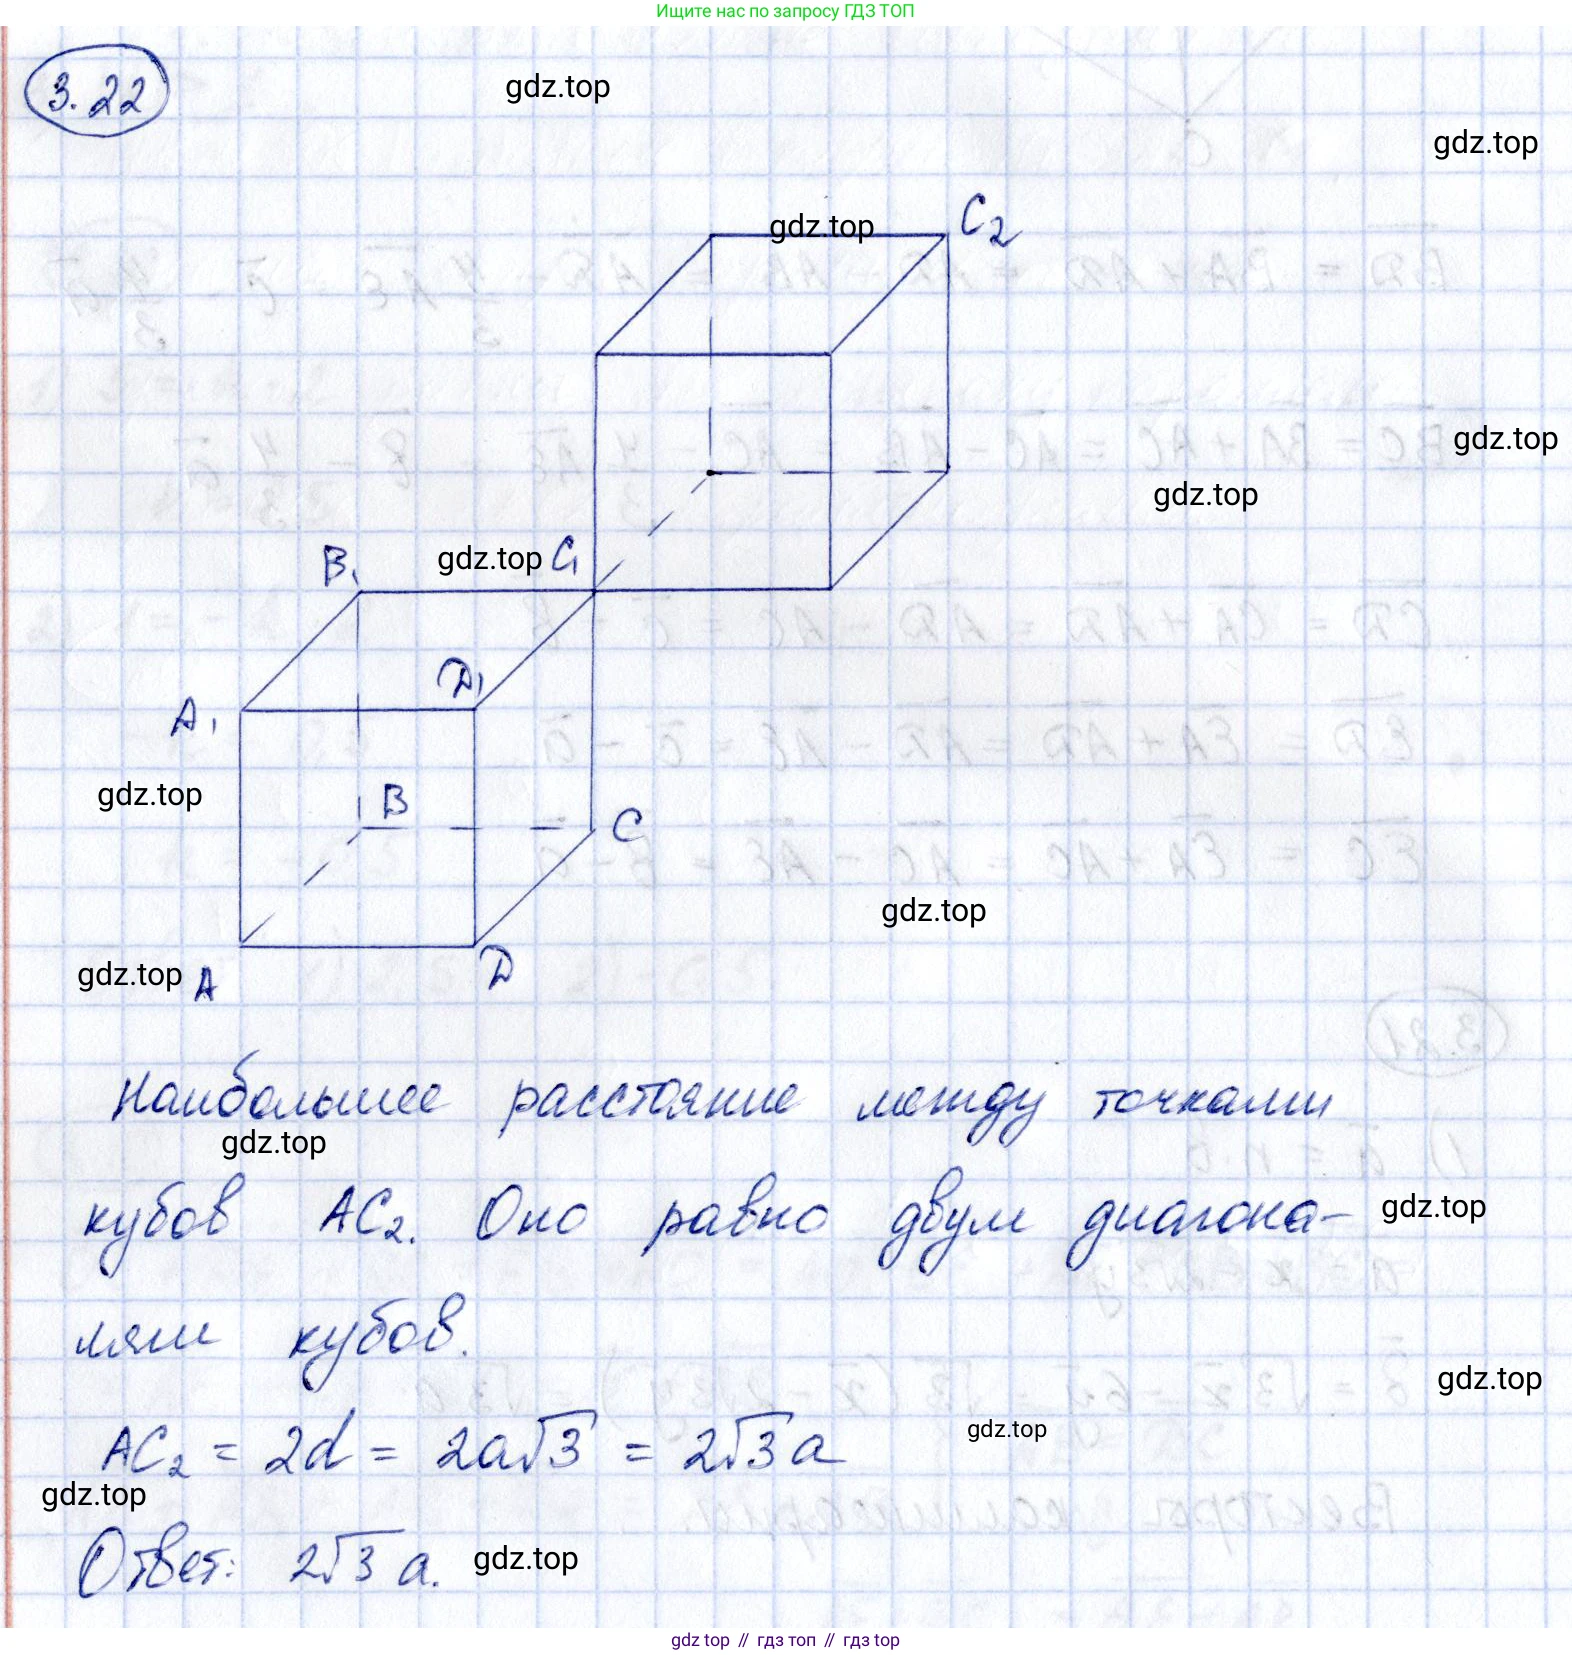 Ищите нас по запросу ГДЗ ТОП
3.22
gdz.top
gdz.top
gdz.top
C₂
gdz.top
gdz.top
B₁
gdz.top
C₁
A₁
D₁
gdz.top
B
C
gdz.top
gdz.top
A
D
Наибольшее расстояние между точками
gdz.top
кубов AC₂. Оно равно двум диагона-
gdz.top
лям кубов.
gdz.top
AC₂ = 2d = 2a√3 = 2√3 a
gdz.top
gdz.top
Ответ: 2√3 a.
gdz.top
gdz top // гдз топ // гдз top